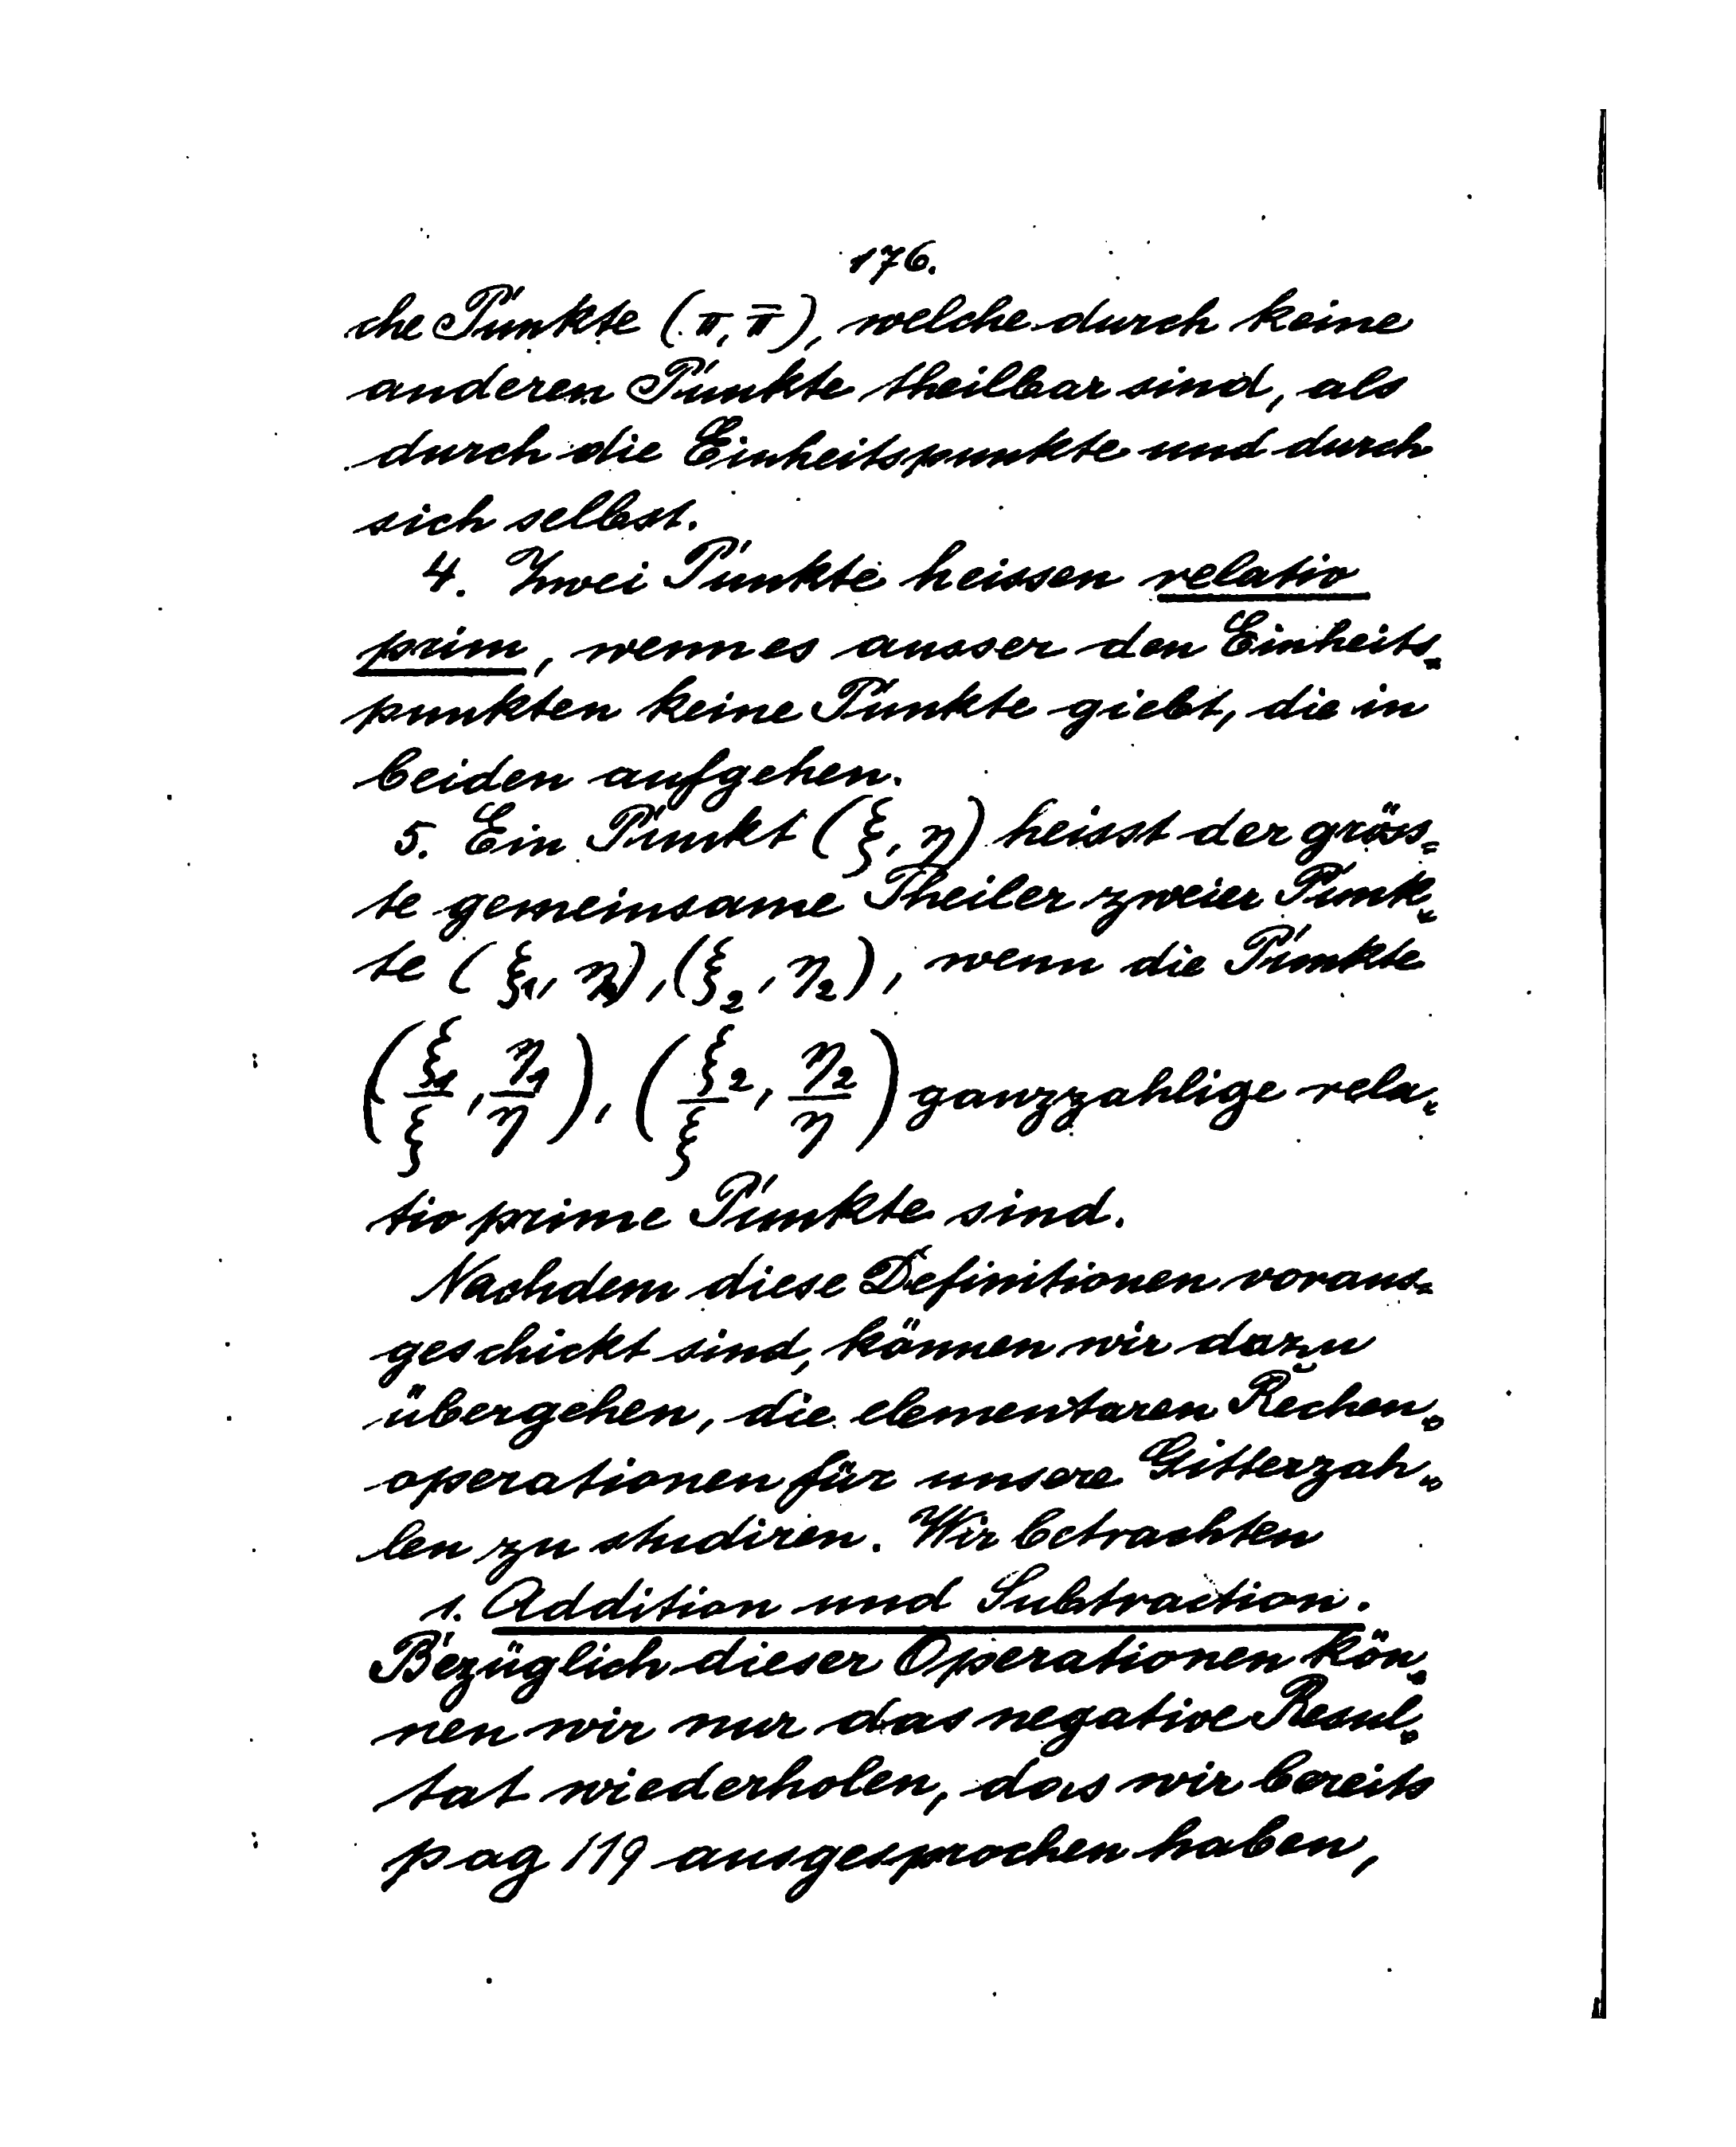 176.
che Punkte (π, π̄), welche durch keine
anderen Punkte theilbar sind, als
durch die Einheitspunkte und durch
sich selbst.
4. Zwei Punkte heissen relativ
prim, wenn es ausser den Einheits-
punkten keine Punkte giebt, die in
beiden aufgehen.
5. Ein Punkt (ξ, η) heisst der gröss=
te gemeinsame Theiler zweier Punk-
te (ξ₁, η₁), (ξ₂, η₂), wenn die Punkte
(ξ₁/ξ, η₁/η), (ξ₂/ξ, η₂/η) ganzzahlige rela-
tiv prime Punkte sind.
Nachdem diese Definitionen voraus-
geschickt sind, können wir dazu
übergehen, die elementaren Rechen-
operationen für unsere Gitterzah-
len zu studiren. Wir betrachten
1. Addition und Subtraction.
Bezüglich dieser Operationen kön-
nen wir nur das negative Resul-
tat wiederholen, das wir bereits
pag 119 ausgesprochen haben,